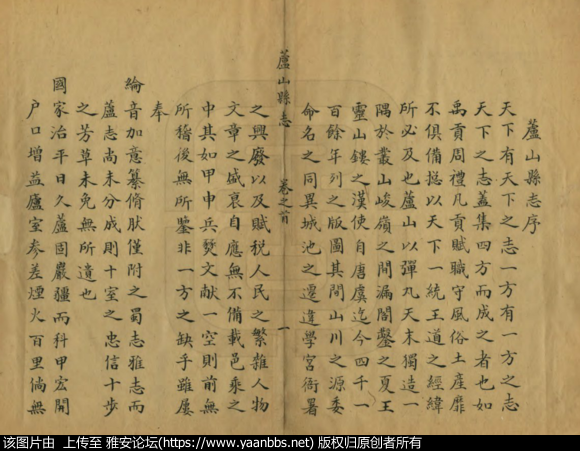 蘆山縣志序
天下有天下之志一方有一方之志
天下之志蓋集四方而成之者也如
禹貢周禮凡貢賦職守風俗土產靡
不俱備揔以天下一統王道之經緯
所必及也蘆山以彈丸天末獨遠一
隅於叢山峻嶺之間漏閣鑿之夏王
靈山鏤之漢使自唐虞迄今四千一
百餘年列之版圖其間山川之源委
命名之同異城池之遷遺學宮衙署
蘆山縣志 卷之首 一
之興廢以及賦税人民之繁雜人物
文章之盛衰自應無不備載邑乘之
中其如甲申兵燹文献一空則前無
所稽後無所鑒非一方之缺乎雖屡
奉
綸音加意纂脩朕僅附之蜀志雅志而
蘆志尚未分成則十室之忠信十步
之芳草未免無所遺也
國家治平日久蘆固嚴疆而科甲宏開
户口增益廬室參差煙火百里倘無
该图片由 上传至 雅安论坛(https://www.yaanbbs.net) 版权归原创者所有